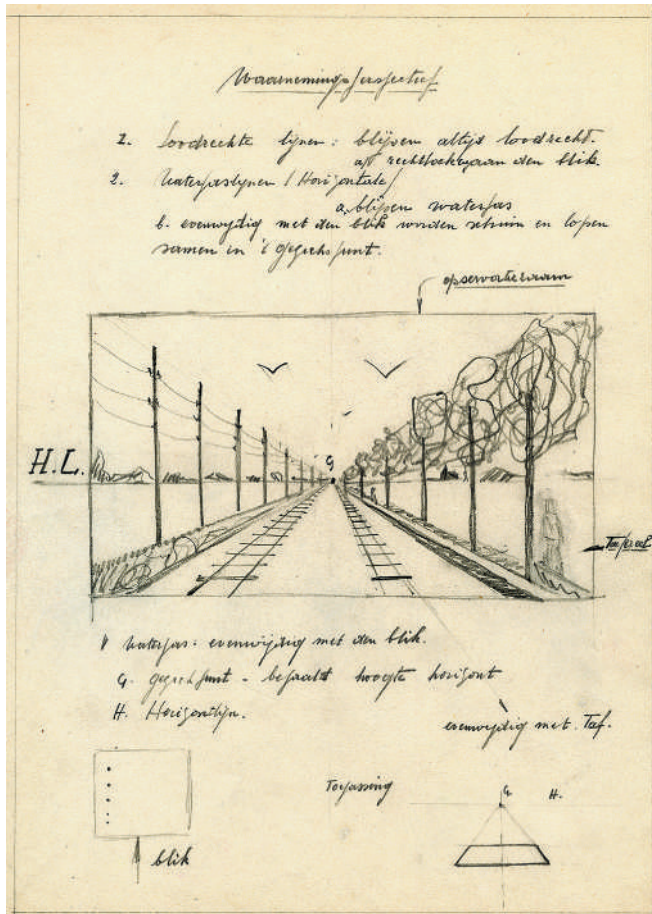 Waarnemingsperspectief
1. Loodrechte lijnen: blijven altijd loodrecht.
op rechthoekg aan den blik.
2. Waterpaslijnen / Horizontale /
a. blijven waterpas
b. evenwijdig met den blik worden schuin en lopen
samen in 't gezichtspunt.
opservatieraam
G
H.L.
Tafereel
waterpas: evenwijdig met den blik.
G. gezichtpunt - bepaalt hoogte horizont
H. Horizontlijn.
evenwijdig met. Taf.
Toepassing
G H.
blik